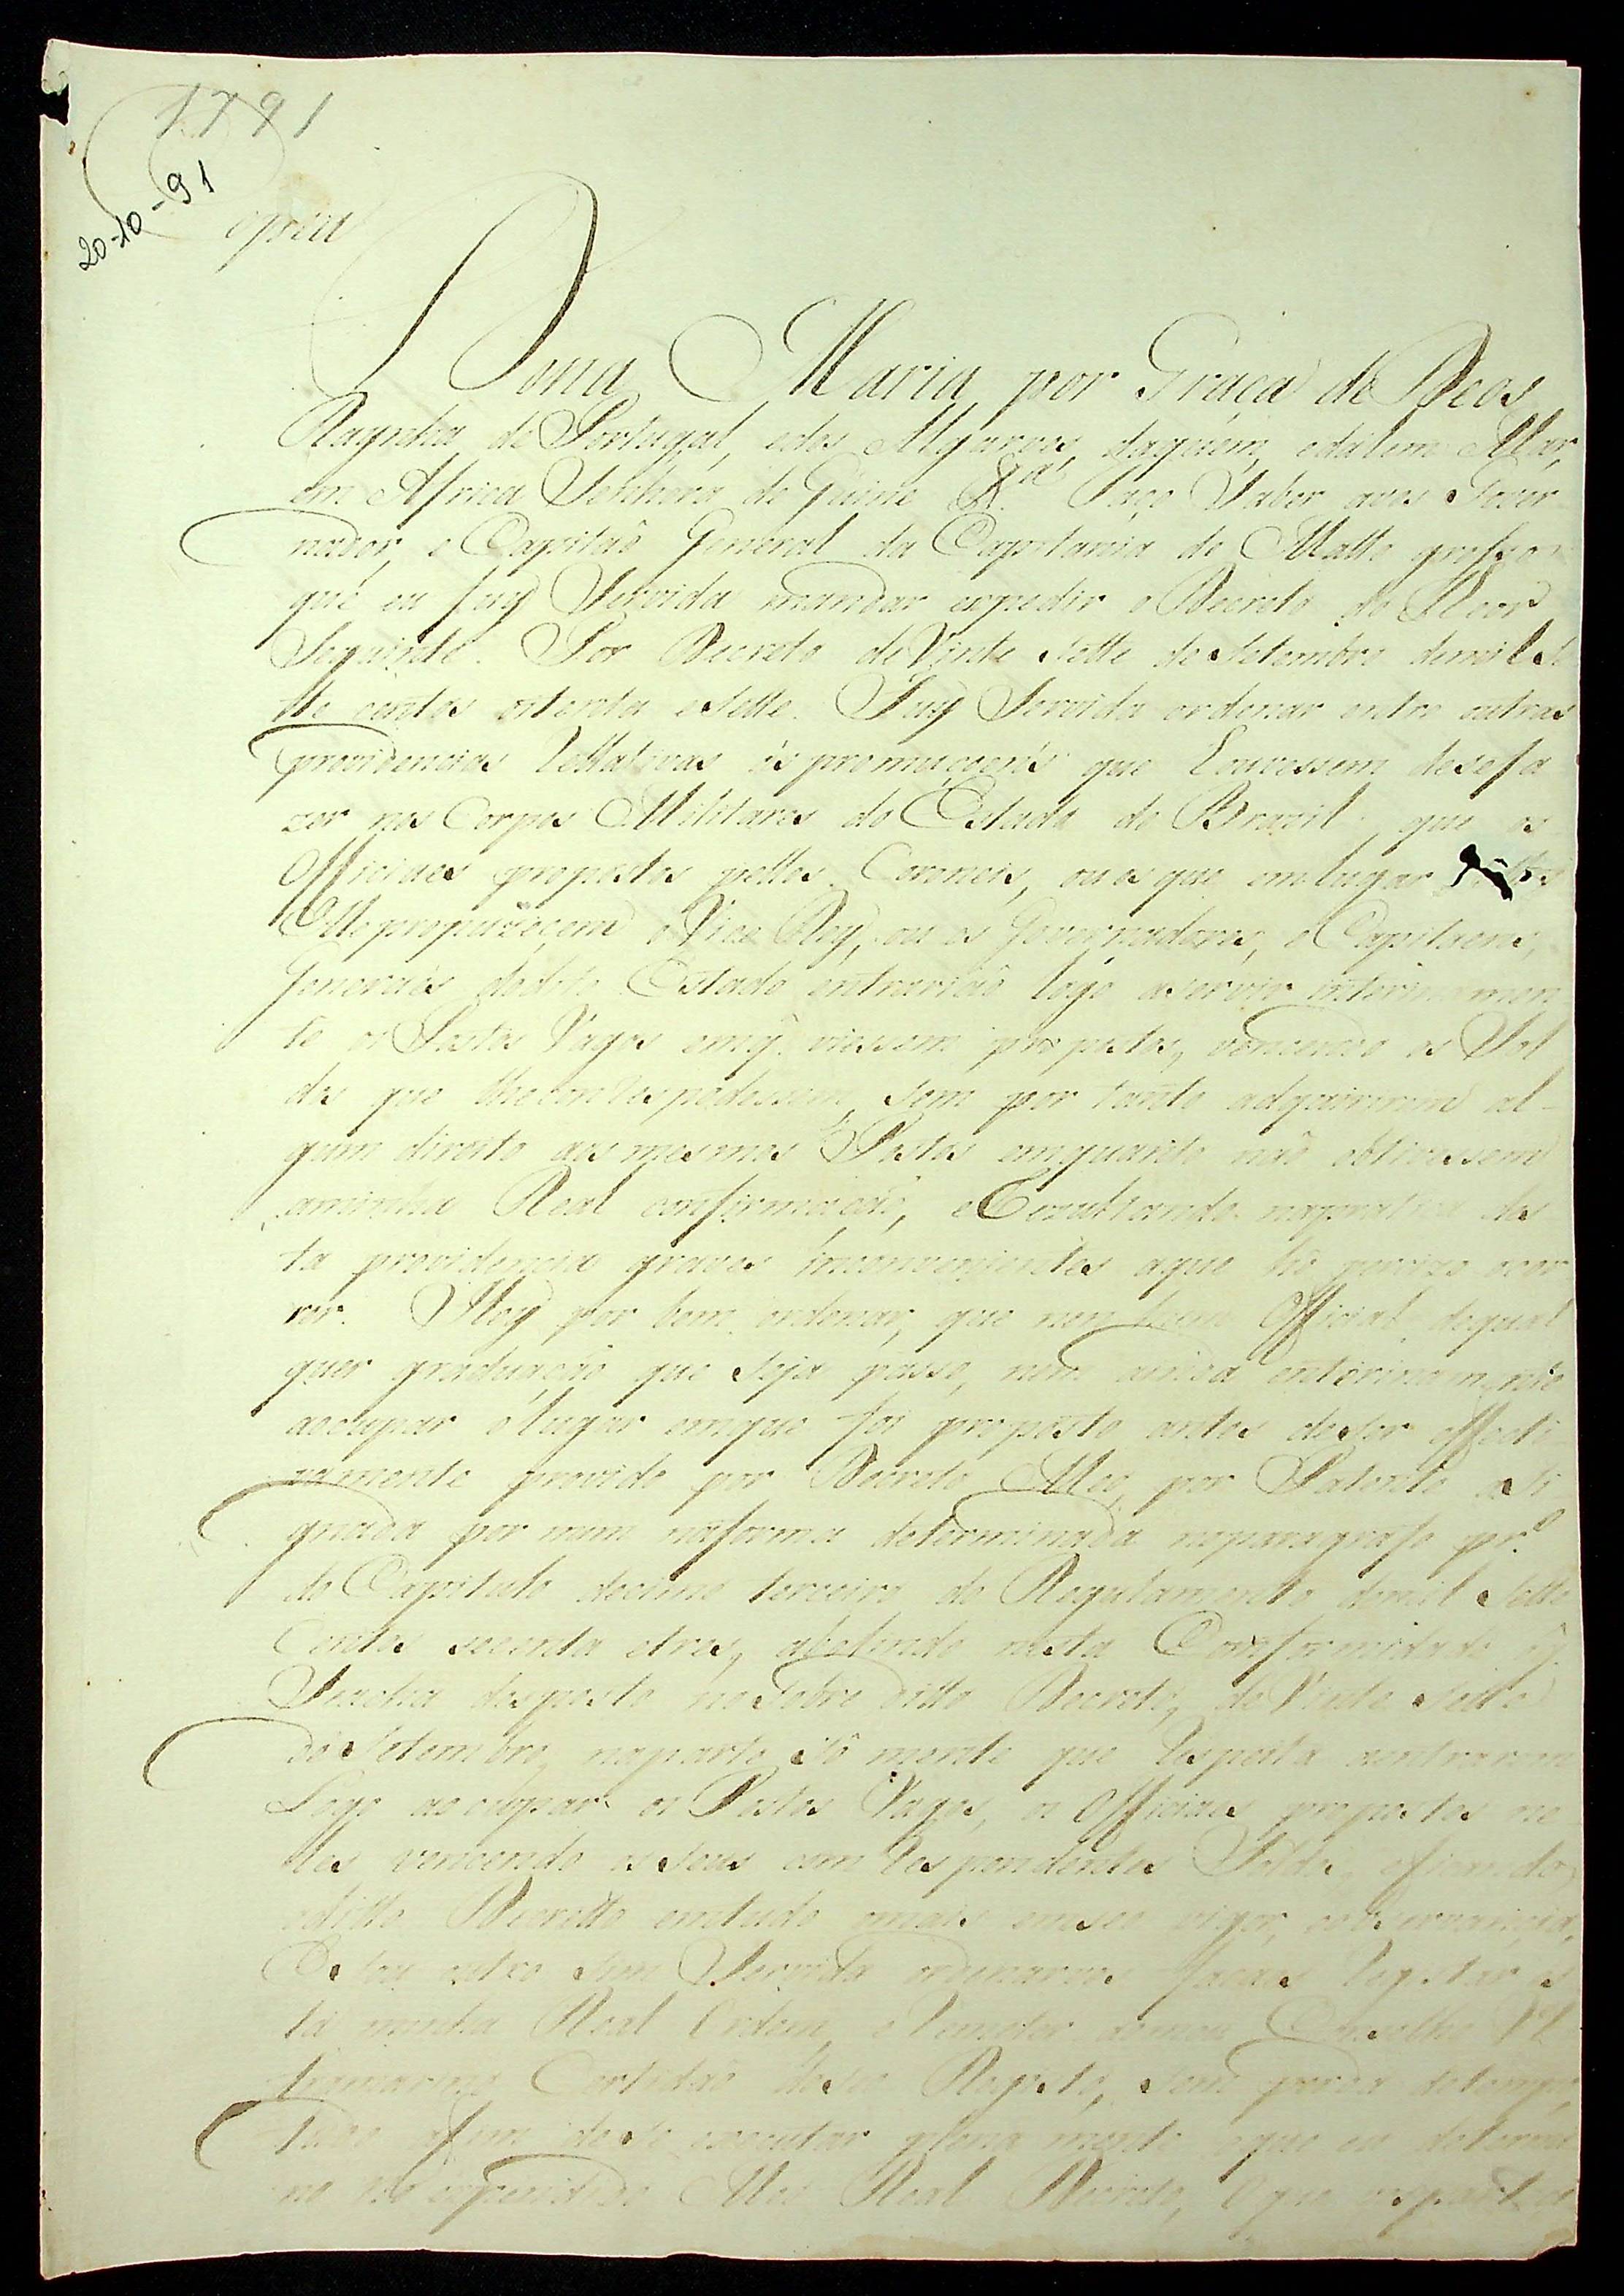 1791
20-10-91
Copia
Dona Maria por Graça de Deos
Raynha de Portugal, edos Algarves, daquem, edalem Mar,
em Africa Senhora de Guine &.ª Faço Saber avos Gover
nador, e Capitaõ General da Capitania do Matto grosso
que eu fuy Servida mandar expedir o Decreto do Theor
Seguinte. Por Decreto de Vinte sette de Setembro demil Se
tte centos oitenta esette. Fuy Servida ordenar entre outras
providencias rellativas ás promuçoens que houvessem desefa
zer nos Corpos Militares do Estado do Brazil, que os
Officiaes propostos pellos Coroneis, ou os que emlugar
Me propuzeçem o Vice Rey, ou os Governadores, e Capitaens,
Generaes dodito Estado entrariaõ logo aservir interinamen
te os Postos Vagos emq. viessem propostos, vencendo os Sol
dos que lhecorrespodessem, sem por tanto adquirirem al-
gum direito aos mesmos Postos emquanto naõ obtivessem
aminha Real confirmaçaõ, e Rezultando napratica des
ta providencia graves inconvenientes aque hé precizo ocor
rer. Hey por bem ordenar, que nem hum Official dequal
quer graduação que seja passe, nem ainda enterinamente
aocupar o lugar emque foi proposto antes deser effecti
vamente provido por Decreto Meo, por Patente asi
gnada por mim naforma determinada noparagrafo pr.º
do Capitulo decimo terceiro do Regulamento demil sette
Centos secenta etres, abolindo nesta Conformidade o q.
Tinha desposto nosobre ditto Decreto, de Vinte sette
de Setembro, naparte só mente que respeita aentrarem
Logo aocupar os Postos Vagos, os Officiaes propostos ne
lles vencendo os seus correspondentes Soldos, eficando
oditto Decretto emtudo omais emseo vigor, eobservancia,
Esou outro sim Servida ordenarvos façaes registar es
ta minha Real Ordem, e remeter aomeu Conselho Ul
tramarino Certidaõ deseo Registo, sem perda detempo,
tudo afim dese executar plena mente oque eu determi
no no expendido Meo Real Decreto, Oque